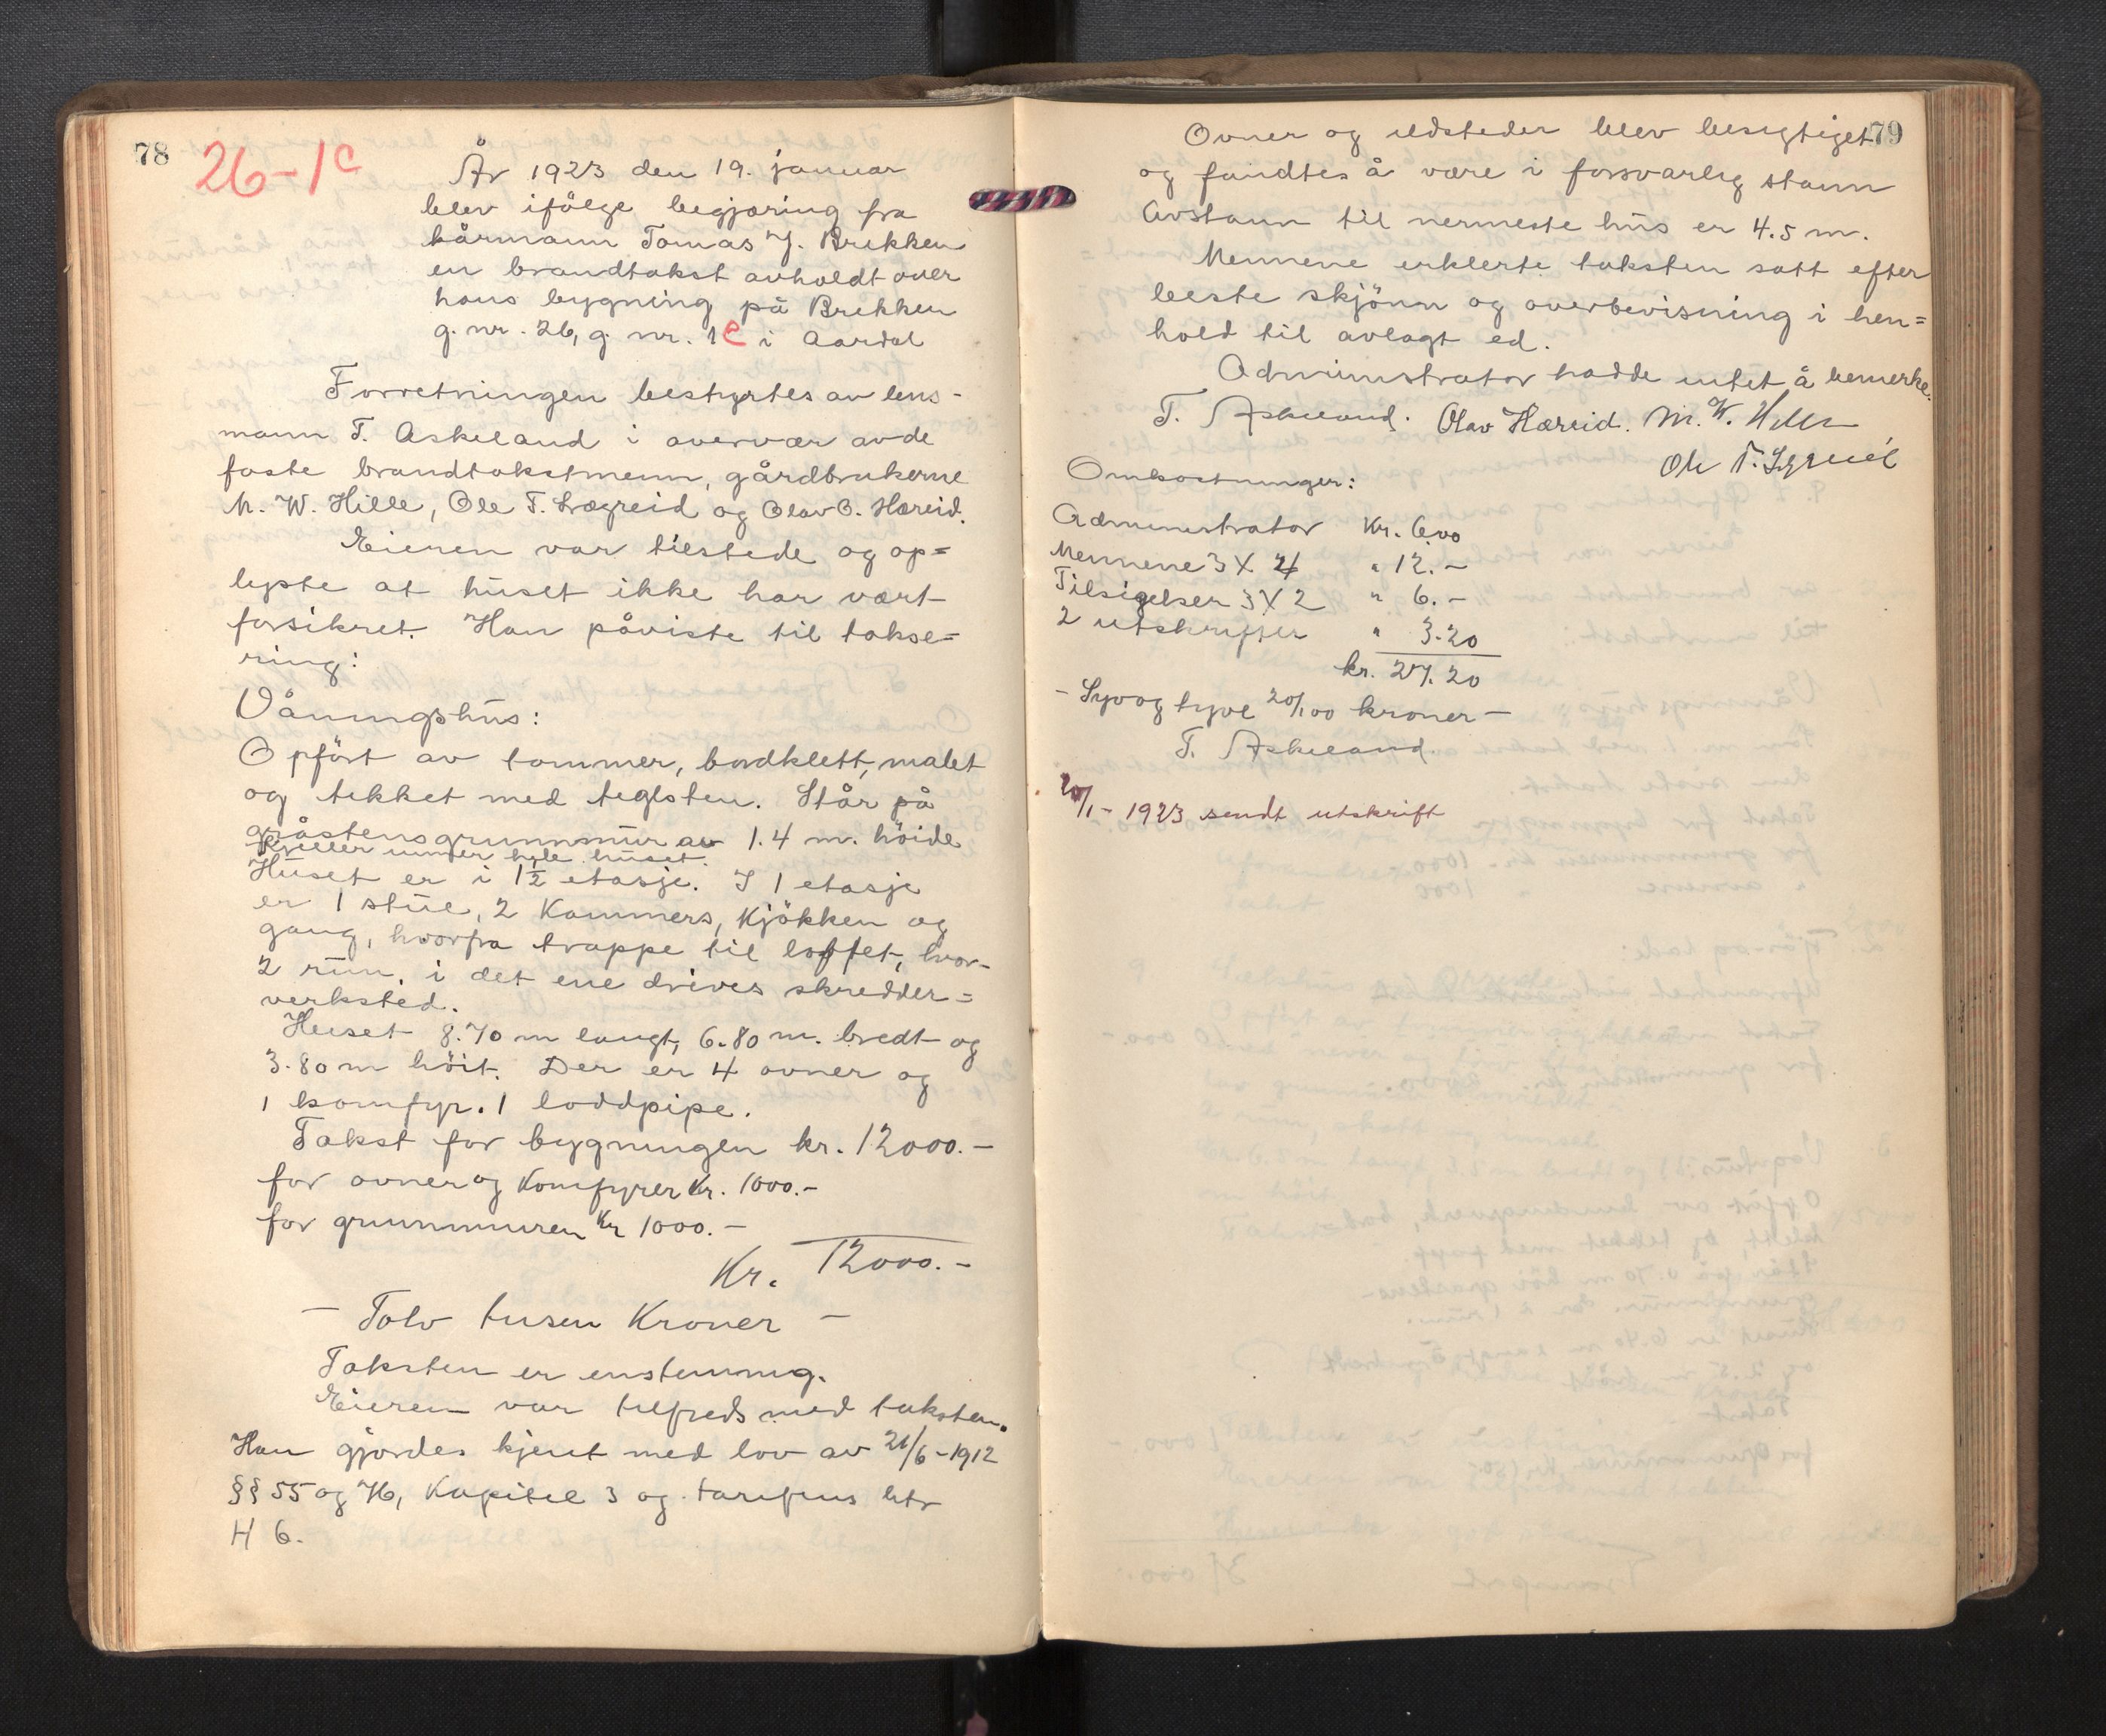 78
26-1c
År 1923 den 19. januar
blev ifölge begjæring fra
kårmann Tomas J. Brekken
en brandtakst avholdt over
hans bygning på Brekken
g. nr. 26, g. nr. 1c i Aardal
Forretningen bestyrtes av lens-
mann T. Askeland i overvær av de
faste brandtakstmenn, gårdbrukerne
M. W. Hille, Ole T. Lægreid og Olav O. Hæreid.
Eieren var tilstede og op=
lyste at huset ikke har vært
forsikret. Han påviste til takse=
ring:
Våningshus:
Opfört av tømmer, bordklett, malet
og tekket med teglsten. Står på
gråstensgrunnmur av 1.4 m. höide
Kjeller under hele huset.
Huset er i 1½ etasje. I 1 etasje
er 1 stue, 2 Kammers, Kjökken og
gang, hvorfra trappe til loftet, hvor-
2 rum, i det ene drives skredder=
verksted.
Huset 8.70 m langt, 6.80 m. bredt og
3.80 m höit. Der er 4 ovner og
1 komfyr. 1 loddpipe.
Takst for bygningen kr. 12000.-
for ovner og Komfyrer Kr. 1000.-
for grunnmuren Kr 1000.-
Kr. 12000.-
- Tolv tusen Kroner -
Taksten er enstemmig.
Eieren var tilfreds med taksten.
Han gjordes kjent med lov av 21/6-1912
§§ 55 og 76, Kapitel 3 og tarifens litr
H 6.
79
Ovner og ildsteder blev besigtiget
og fandtes å være i forsvarlig stann
Avstann til nermeste hus er 4.5 m.
Mennene erklerte taksten satt efter
beste skjönn og overbevisning i hen=
hold til avlagt ed.
Administrator hadde intet å bemerke.
T. Askeland. Olav Hæreid. M. W. Hille
Ole T. Lægreid
Omkostninger:
Administrator Kr. 6.00
Mennene 3 X 4 " 12.-
Tilsigelser 3 X 2 " 6.-
2 utskrifter " 3.20
kr. 27.20
- Syv og tyve 20/100 kroner -
T. Askeland.
20/1-1923 sendt utskrift